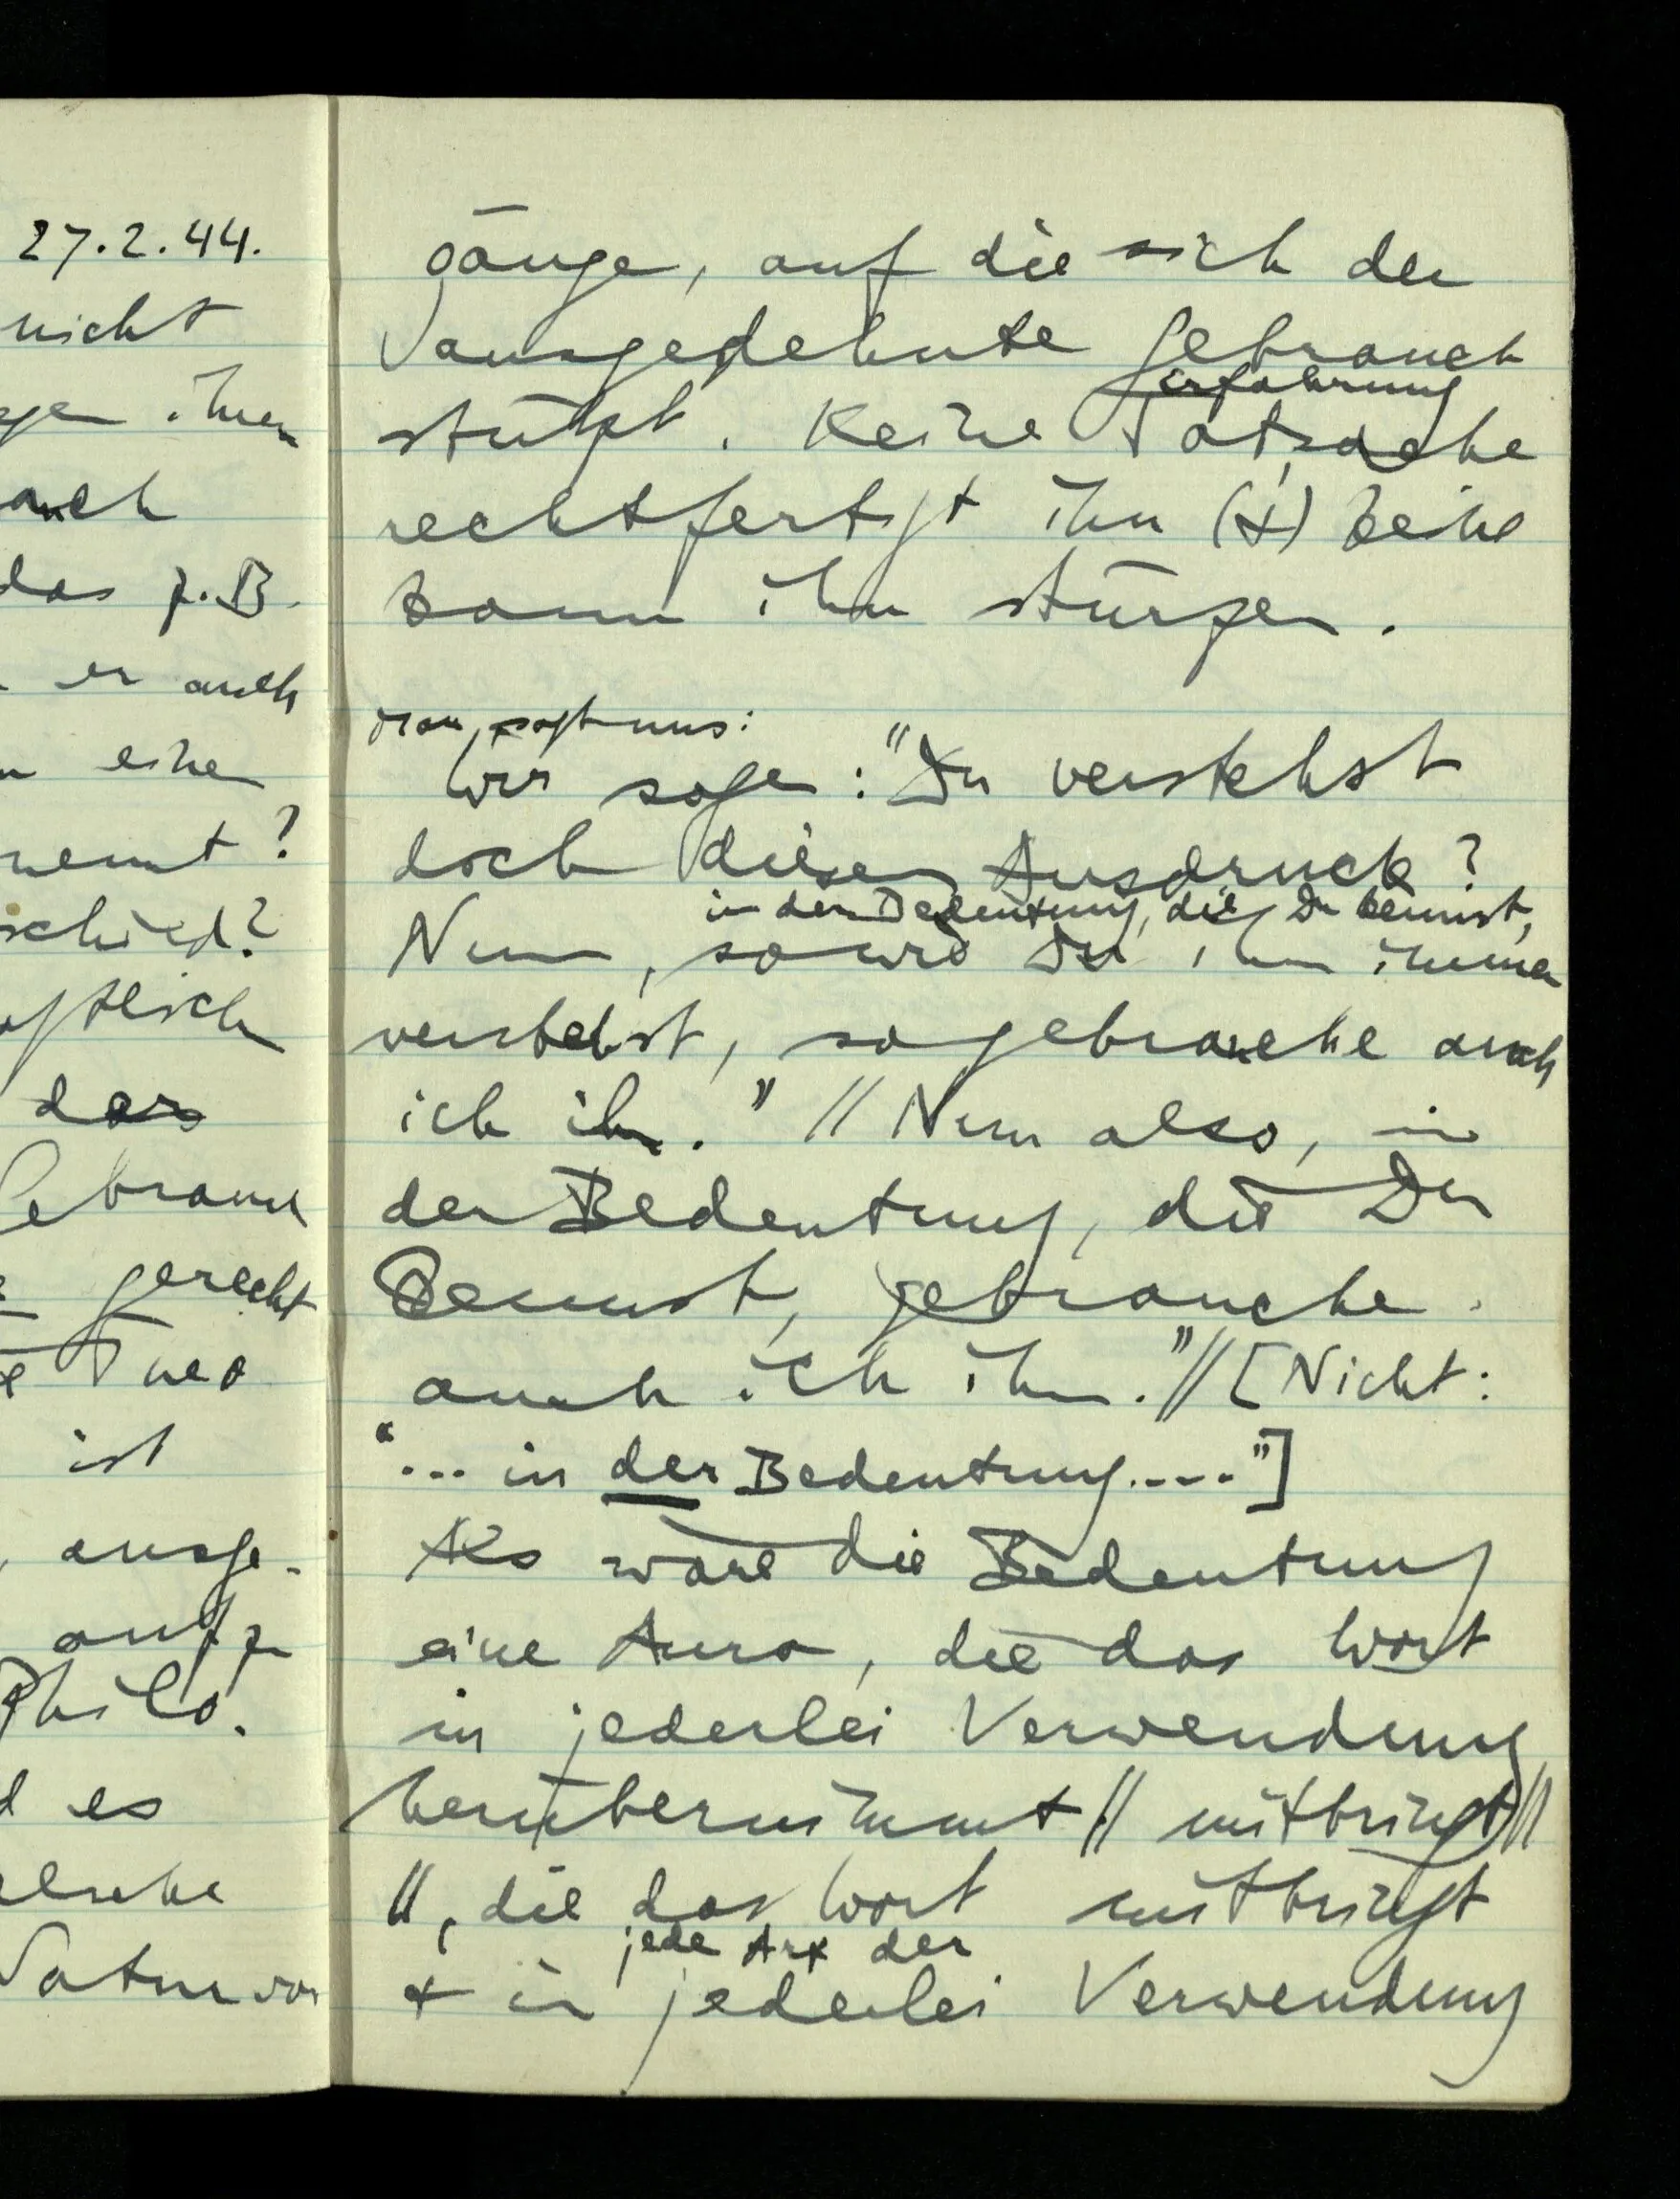 27.2.44.
nicht
ihren
auch
das z.B.
er auch
eine
nennt?
schied?
das
Gebrauch
gerecht
ist
, ausge-
auf zu
Philo-
es
gänge, auf die sich der
ausgedehnte Gebrauch
Erfahrung
stützt. Keine Tatsache
rechtfertigt ihn (&) keine
kann ihn stürzen.
Man sagt uns:
Wir sagen: "Du verstehst
doch diesen Ausdruck?
in der Bedeutung, die Du kennst,
Nun, sowie Du ihn immer
verstehst, so gebrauche auch
ich ihn." // Nun also, in
der Bedeutung, die Du
kennst, gebrauche
auch ich ihn."// [Nicht:
"... in der Bedeutung...."]
Als wäre die Bedeutung
eine Aura, die das Wort
in jederlei Verwendung
herübernimmt // mitbringt //
//, die das Wort mitbringt
jede Art der
& in jederlei Verwendung